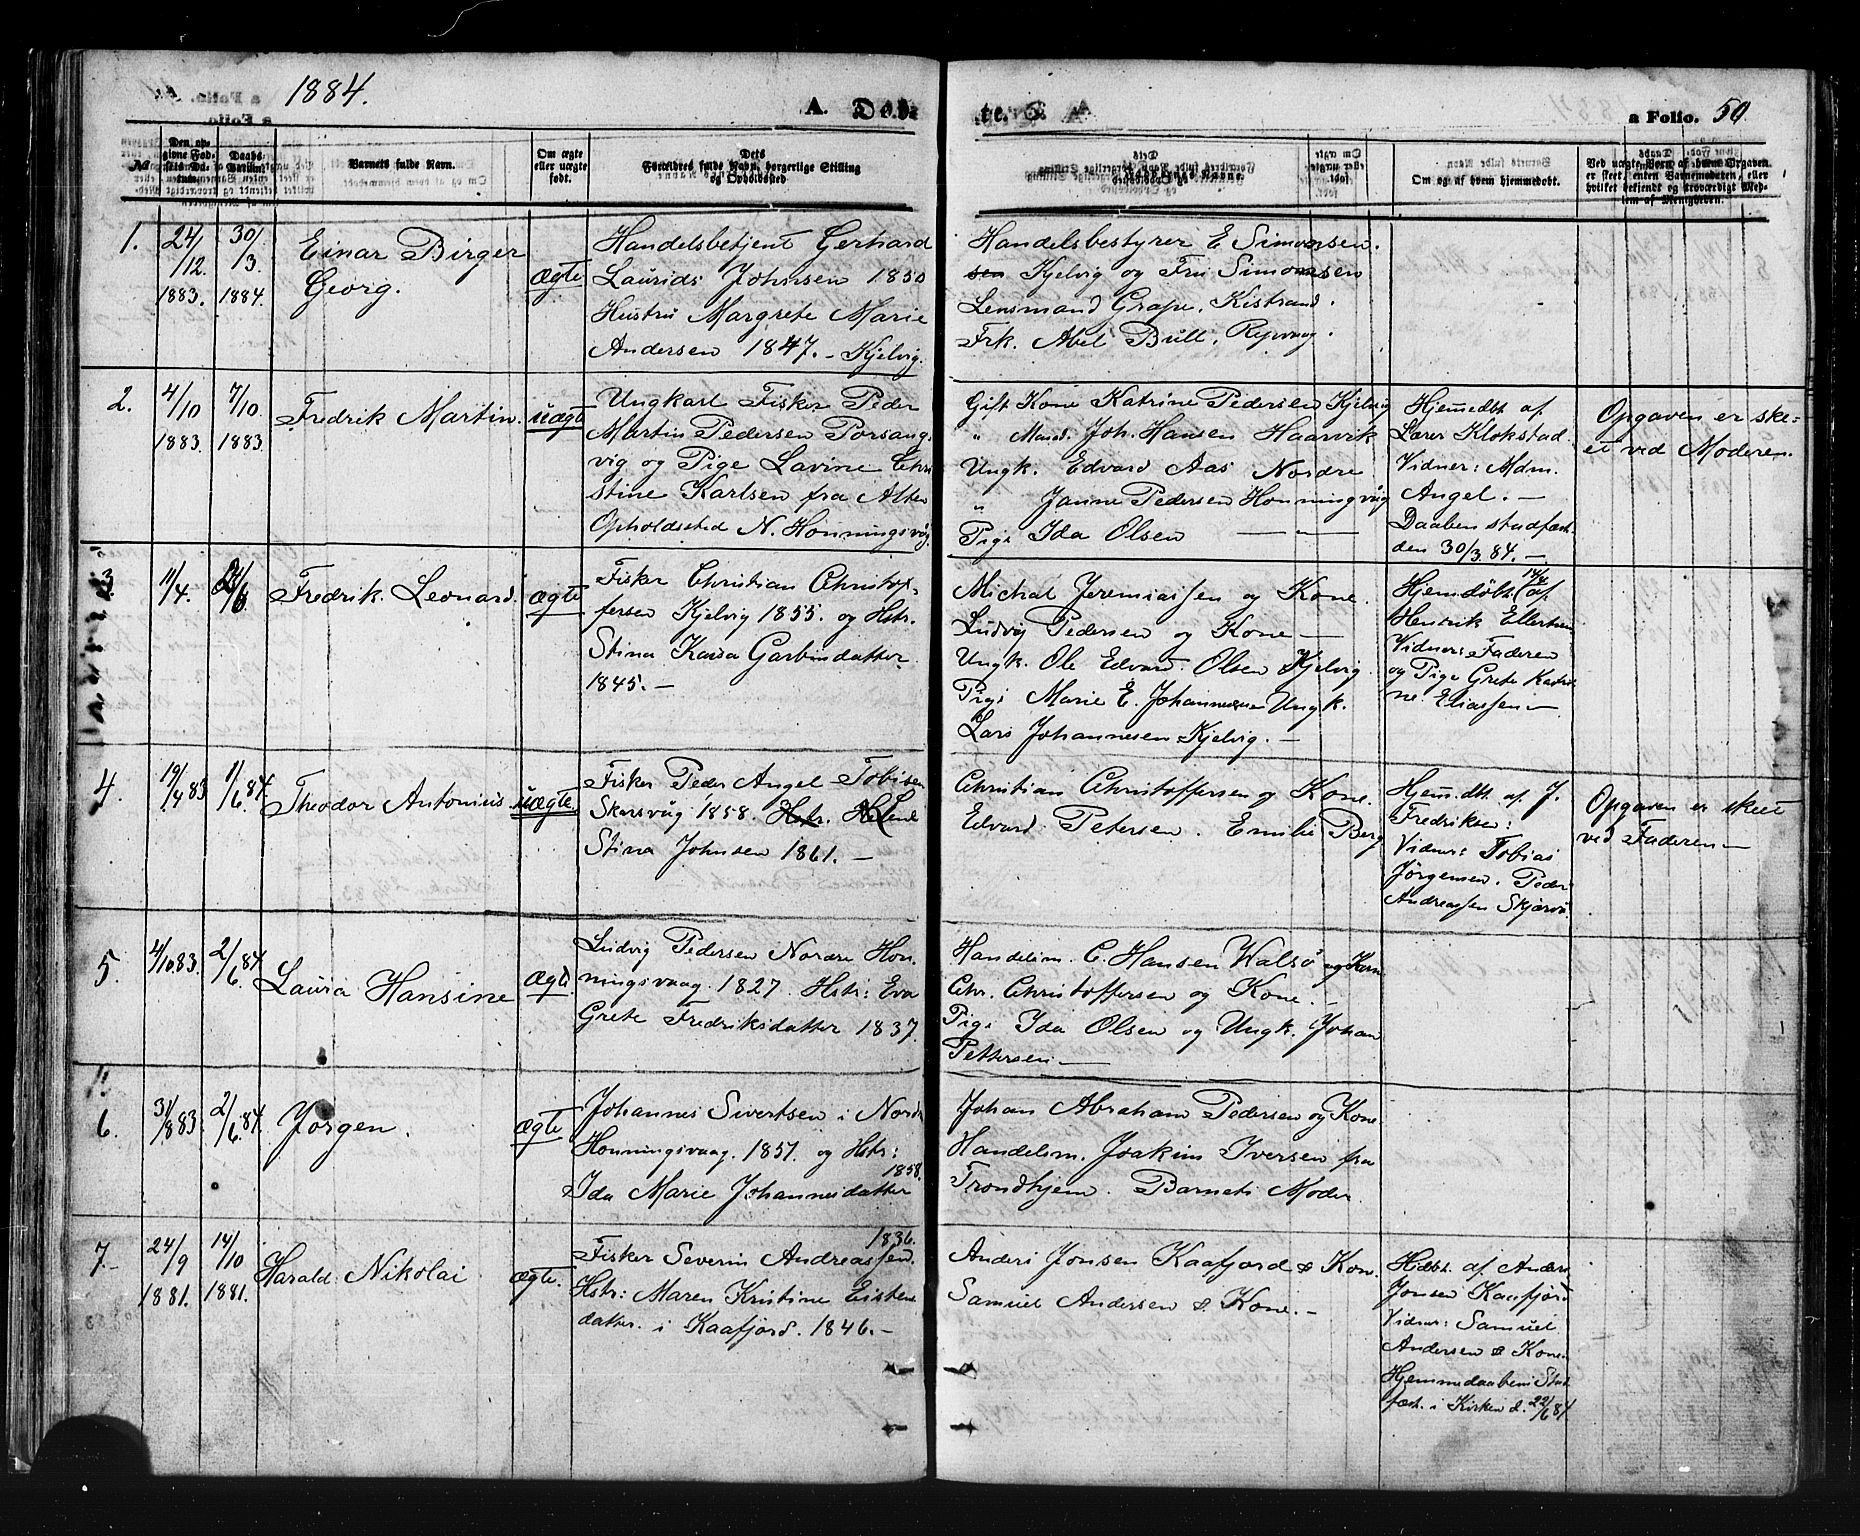 1884.
A. Døb-
te.
a Folio. 50
No
Den op-
givne Fød-
sels Da-
tum.
Daabs-
Datum.
Barnets fulde Navn.
Om ægte
eller uægte
født.
Dets
Forældres fulde Navn, borgerlige Stilling
og Opholdssted
Om og af hvem hjemmedøbt.
Ved uægte Børn af hvem Opgaven
er skeet, enten Barnemoderen, eller
hvilket bekjendt og troværdigt Med-
lem af Menigheden.
1.
24/12. 1883.
30/3. 1884.
Einar Birger
Georg.
Ægte
Handelsbetjent Gerhard
Laurids Johnsen 1850
Hustru Margrete Marie
Andersen 1847. – Kjelvig.
Handelsbestyrer E Simonsen.
sen Kjelvig og Fru Simonsen
Lensmand Grape, Kistrand.
Frk. Abel Bull, Repvaag.
2.
4/10 1883.
7/10. 1883.
Fredrik Martin.
uægte
Ungkarl Fisker Peder
Martin Pedersen Porsang-
vig og Pige Lavine Chri
stine Karlsen fra Alten
Opholdssted N. Honningsvåg.
Gift Kone Katrine Pedersen Kjelvig
" Mand. Joh. Hansen Haarvik
Ungk. Edvard Aas Nordre
" Janne Pedersen Honningvåg
Pige Ida Olsen — " —
Hjemmedbt af
Lærer Klokstad.
Vidner: Mdm.
Angel. –
Daaben stadfæst
den 30/3.84. –
Opgaven er ske-
et ved Moderen.
3
11/4.
Fredrik Leonard.
ægte
Fisker Christian Christof-
fersen Kjelvig 1855. og Hstr.
Stina Kaisa Garbindatter
1845. –
Michal Jeremiassen og Kone.
Ludvig Pedersen og Kone –
Ungk. Ole Edvard Olsen Kjelvig
Pige Marie E. Johannesen Ungk.
Lars Johannesen Kjelvig. –
Hjemdøbt 14/4 af
Henrik Ellertsen
Vidner: Faderen
og Pige Grete Katri
ne Eliassen –
4.
19/4 83
1/6. 84.
Theodor Antonius
uægte
Fisker Peder Angel Tobisen
Skarsvåg 1858. Hstr. Helene
Stina Johnsen 1861. –
Christian Christoffersen og Kone.
Edvard Petersen. Emilie Berg
Hjemdbt af J.
Fredriksen:
Vidner: Tobias
Jørgensen. Peder
Andreassen Skjærvö.
Opgaven er skeet
ved Faderen –
5.
4/10 83.
2/6. 84
Laura Hansine
Ægte
Ludvig Pedersen Nordre Hon-
ningsvaag. 1827. Hstr: Eva
Grete Fredriksdatter 1837.
Handelsm. C. Hansen Walsö og Kone
Chr. Christoffersen og Kone. –
Pige Ida Olsen og Ungk. Johan
Pettersen –
6.
31/8 83
2/6. 84.
Jörgen.
ægte
Johannes Sivertsen i Nordre
Honningsvaag. 1857. og Hstr:
1858.
Ida Marie Johannesdatter
Johan Abraham Pedersen og Kone
Handelsm. Joakim Iversen fra
Trondhjem. Barnets Moder
7. –
24/9 1881.
14/10 1881.
Harald Nikolai
ægte.
1836.
Fisker Severin Andreassen.
Hstr: Maren Kristine Eistens
datter i Kaafjord. 1846. –
Anders Jonsen Kaafjord & Kone.
Samuel Andersen & Kone. –
Hdbt. af Anders
Jonsen Kaafjord
Vidner: Samuel
Andersen & Kone.
Hjemmedaabens Stad
fæst. i Kirken d. 22/6 84